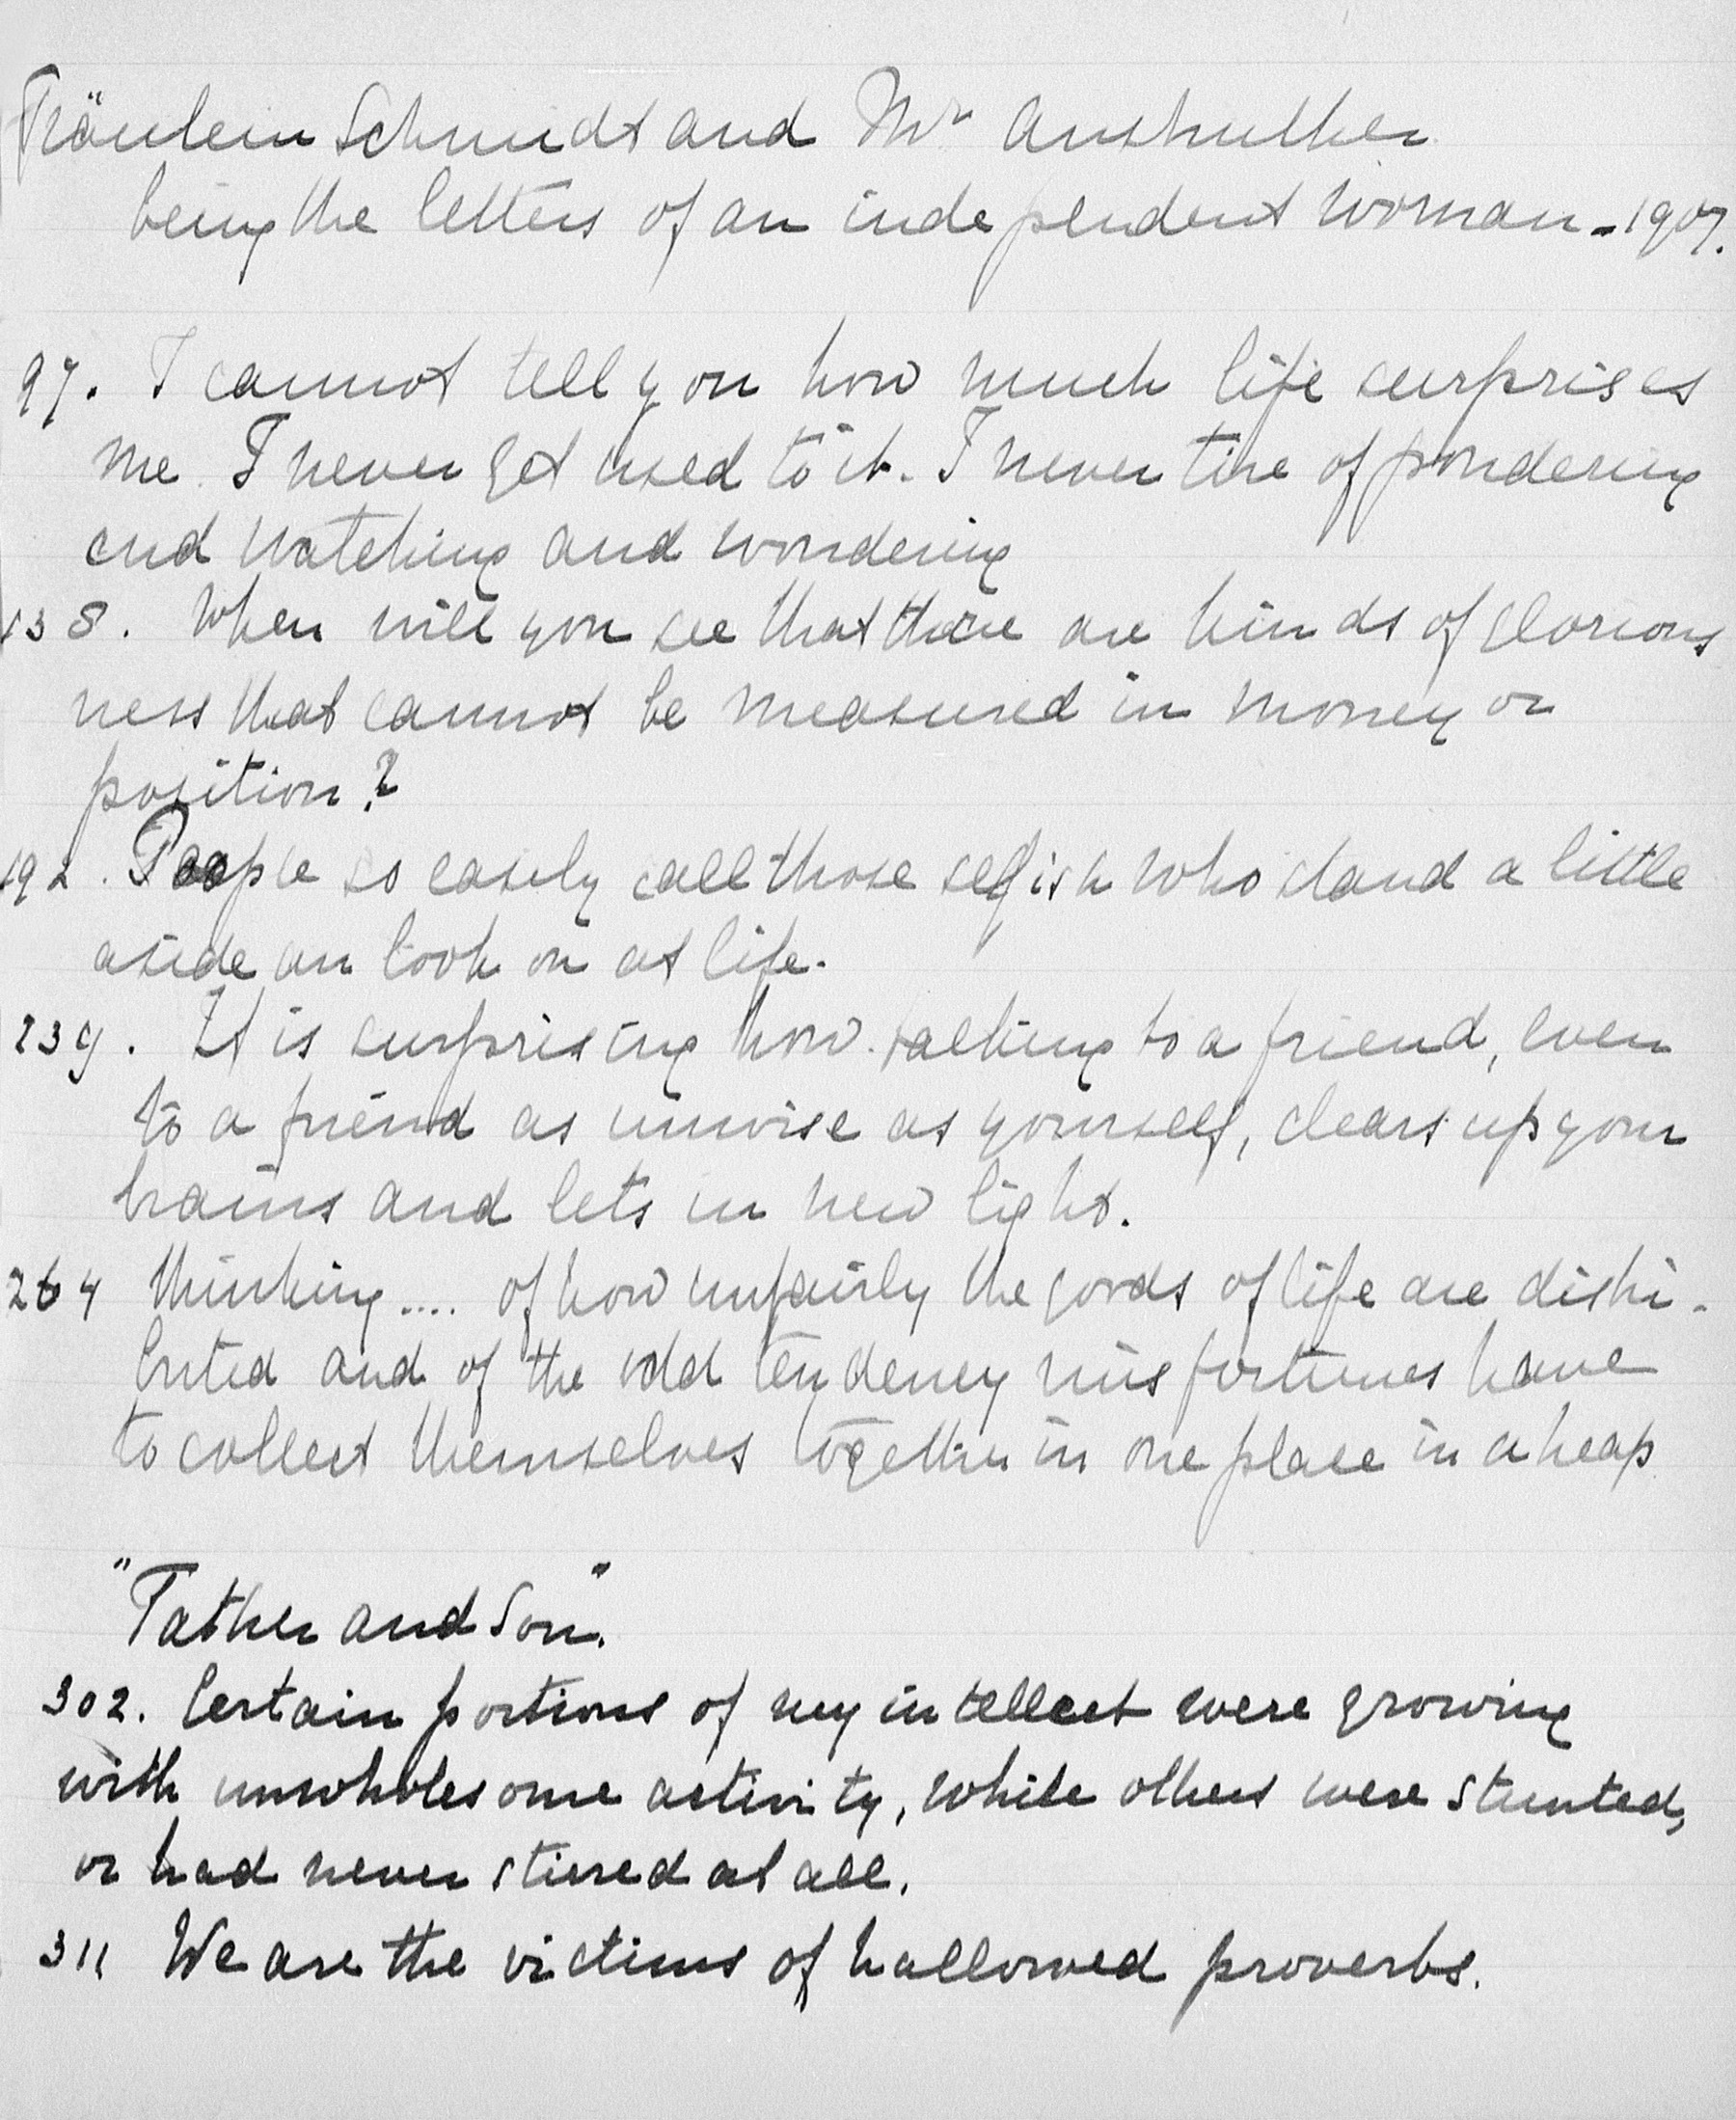 Fräulein Schmidt and Mr Anstruther
being the letters of an independent woman - 1907.
97. I cannot tell you how much life surprises
me. I never get used to it. I never tire of pondering
and watching and wondering
138. When will you see that there are kinds of glorious
ness that cannot be measured in money or
position?
192. People so easily call those selfish who stand a little
aside an look on at life.
239. It is surprising how talking to a friend, even
to a friend as unwise as yourself, clears up your
brains and lets in new light.
264 Thinking .... of how unfairly the goods of life are distri-
buted and of the odd tendency misfortunes have
to collect themselves together in one place in a heap
"Father and Son".
302. Certain portions of my intellect were growing
with unwholesome activity, while others were stunted,
or had never stirred at all.
311 We are the victims of hallowed proverbs.